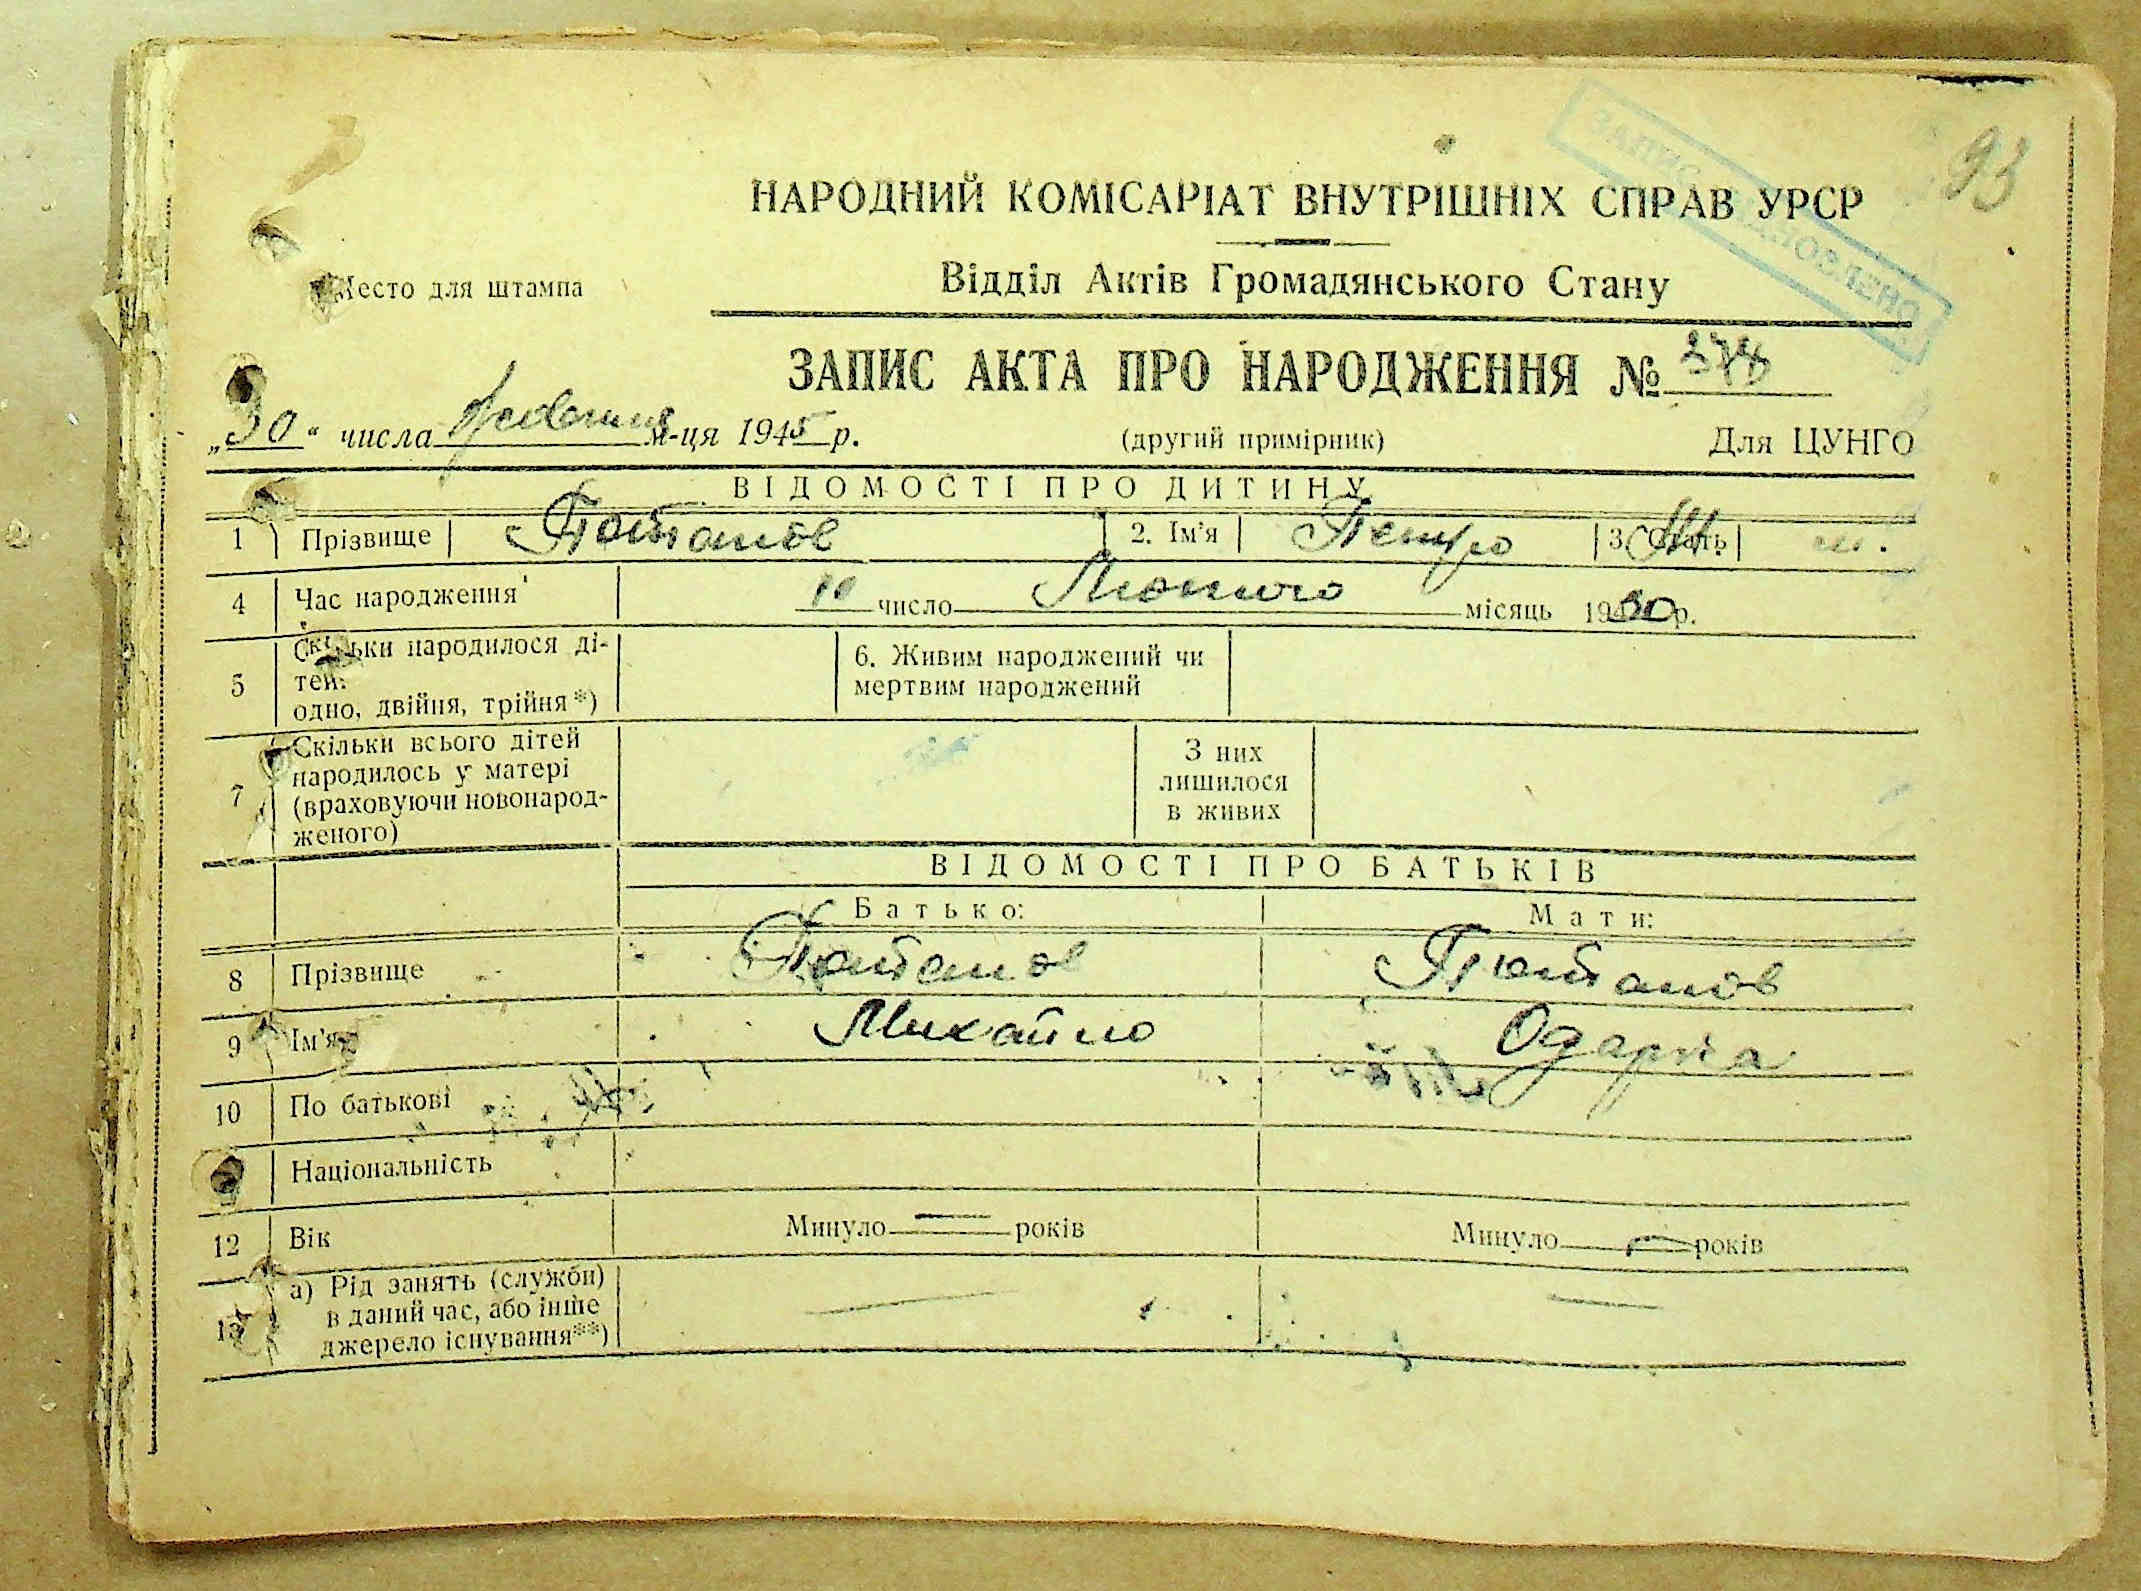 93
НАРОДНИЙ КОМІСАРІАТ ВНУТРІШНІХ СПРАВ УРСР
Место для штампа
Відділ Актів Громадянського Стану
ЗАПИС АКТА ПРО НАРОДЖЕННЯ № 378
„30“ числа м-ця 1945 р. (другий примірник) Для ЦУНГО
ВІДОМОСТІ ПРО ДИТИНУ
1 Прізвище 2. Ім'я Петро 3. Стать
4 Час народження 10 число Лютого місяць р.
5 Скільки народилося ді-
тей:
одно, двійня, трійня*)
6. Живим народжений чи
мертвим народжений
7 Скільки всього дітей
народилось у матері
(враховуючи новонарод-
женого)
З них
лишилося
в живих
ВІДОМОСТІ ПРО БАТЬКІВ
Батько: Мати:
8 Прізвище
9 Ім'я Михайло Одарка
10 По батькові
Національність
12 Вік Минуло — років Минуло — років
13 а) Рід занять (служби)
в даний час, або інше
джерело існування**)